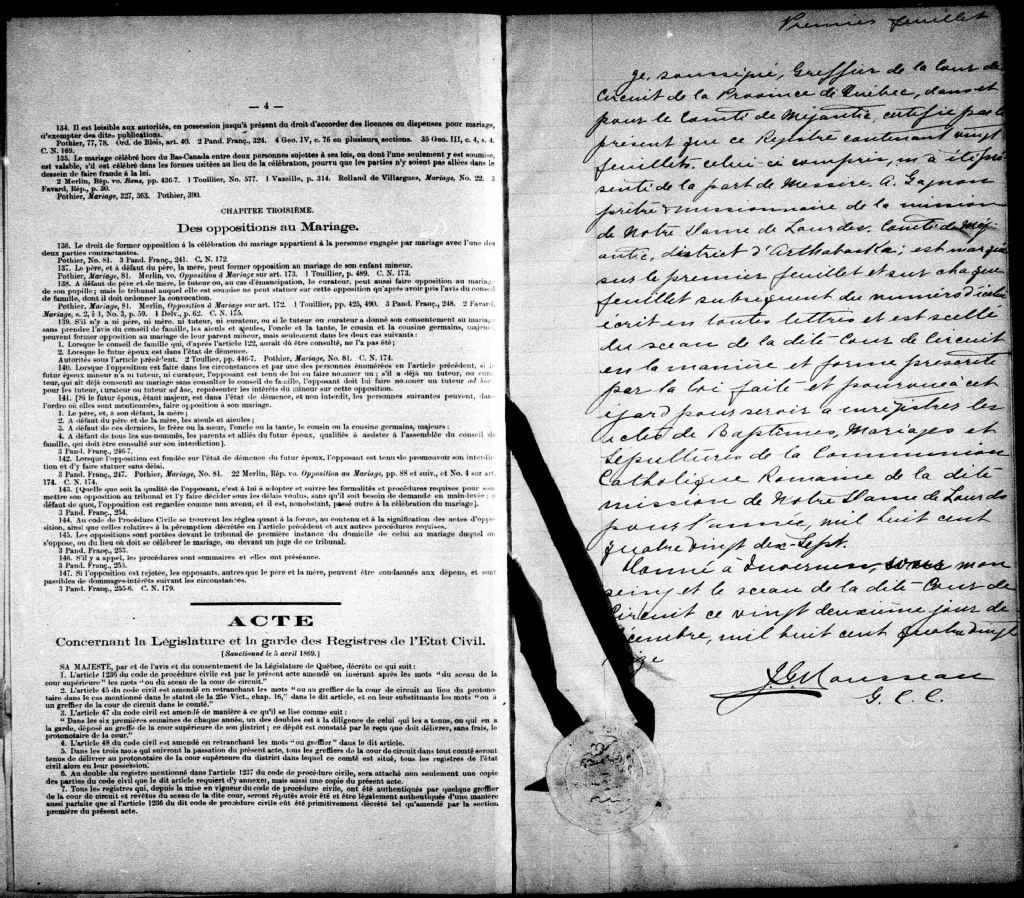 — 4 —
134. Il est loisible aux autorités, en possession jusqu'à présent du droit d'accorder des licences ou dispenses pour mariage,
d'exempter des dites publications.
Pothier, 77, 78. Ord. de Blois, art. 40. 2 Pand. Franç., 324. 4 Geo. IV, c. 76 en plusieurs, sections. 35 Geo. III, c. 4, s. 4.
C. N. 169.
135. Le mariage célébré hors du Bas-Canada entre deux personnes sujettes à ses lois, ou dont l'une seulement y est soumise,
est valable, s'il est célébré dans les formes usitées au lieu de la célébration, pourvu que les parties n'y soient pas allées dans le
dessein de faire fraude à la loi.
2 Merlin, Rép. vo. Bans, pp. 436-7. 1 Touillier, No. 577. 1 Vazeille, p. 314. Rolland de Villargues, Mariage, No. 22. 3
Favard, Rép., p. 30.
Pothier, Mariage, 327, 363. Pothier, 390.
CHAPITRE TROISIÈME.
Des oppositions au Mariage.
136. Le droit de former opposition à la célébration du mariage appartient à la personne engagée par mariage avec l'une des
deux parties contractantes.
Pothier, No. 81. 3 Pand. Franç., 241. C. N. 172.
137. Le père, et à défaut du père, la mère, peut former opposition au mariage de son enfant mineur.
Pothier, Mariage, 81. Merlin, vo. Opposition à Mariage sur art. 173. 1 Touillier, p. 489. C. N. 173.
138. A défaut de père et de mère, le tuteur ou, au cas d'émancipation, le curateur, peut aussi former opposition au mariage
de son pupille; mais le tribunal auquel elle est soumise ne peut statuer sur cette opposition qu'après avoir pris l'avis du conseil
de famille, dont il doit ordonner la convocation.
Pothier, Mariage, 81. Merlin, Opposition à Mariage sur art. 172. 1 Touillier, pp. 425, 490. 3 Pand. Franç., 248. 2 Favard,
Mariage, s. 2, § 1, No. 3, p. 59. 1 Delv., p. 62. C. N. 175.
139. S'il n'y a ni père, ni mère, ni tuteur, ni curateur, ou si le tuteur ou curateur a donné son consentement au mariage
sans prendre l'avis du conseil de famille, les aieuls et aïeules, l'oncle et la tante, le cousin et la cousine germains, majeurs,
peuvent former opposition au mariage de leur parent mineur, mais seulement dans les deux cas suivants:
1. Lorsque le conseil de famille qui, d'après l'article 122, aurait dû être consulté, ne l'a pas été;
2. Lorsque le futur époux est dans l'état de démence.
Autorités sous l'article précédent. 2 Toullier, pp. 446-7. Pothier, Mariage, No. 81. C. N. 174.
140. Lorsque l'opposition est faite dans les circonstances et par une des personnes énumérées en l'article précédent, si le
futur époux mineur n'a ni tuteur, ni curateur, l'opposant est tenu de lui en faire nommer un; s'il a déjà un tuteur ou cura-
teur, qui ait déjà consenti au mariage sans consulter le conseil de famille, l'opposant doit lui faire nommer un tuteur ad hoc
pour les tuteur, curateur ou tuteur ad hoc, représenter les intérêts du mineur sur cette opposition.
141. [Si le futur époux, étant majeur, est dans l'état de démence, et non interdit, les personnes suivantes peuvent, dans
l'ordre où elles sont mentionnées, faire opposition à son mariage.
1. Le père, et, à son défaut, la mère;
2. A défaut du père et de la mère, les aieuls et aieules;
3. A défaut de ces derniers, le frère ou la sœur, l'oncle ou la tante, le cousin ou la cousine germains, majeurs:
4. A défaut de tous les sus-nommés, les parents et alliés du futur époux, qualifiés à assister à l'assemblée du conseil de
famille, qui doit être consulté sur son interdiction.]
3 Pand. Franç., 246-7.
142. Lorsque l'opposition est fondée sur l'état de démence du futur époux, l'opposant est tenu de promouvoir son interdic-
tion et d'y faire statuer sans délai.
3 Pand. Franç., 247. Pothier, Mariage, No. 81. 22 Merlin, Rép. vo. Opposition au Mariage, pp. 88 et suiv., et No. 4 sur art.
174. C. N. 174.
143. [Quelle que soit la qualité de l'opposant, c'est à lui à adopter et suivre les formalités et procédures requises pour sou-
mettre son opposition au tribunal et l'y faire décider sous les délais voulus, sans qu'il soit besoin de demande en main-levée; à
défaut de quoi, l'opposition est regardée comme non avenu, et il est, nonobstant, passé outre à la célébration du mariage].
3 Pand. Franç., 254.
144. Au code de Procédure Civile se trouvent les règles quant à la forme, au contenu et à la signification des actes d'oppo-
sition, ainsi que celles relatives à la péremption décrétée en l'article précédent et aux autres procédures requises.
145. Les oppositions sont portées devant le tribunal de première instance du domicile de celui au mariage duquel on
s'oppose, ou du lieu où doit se célébrer le mariage, ou devant un juge de ce tribunal.
3 Pand. Franç., 253.
146. S'il y a appel, les procédures sont sommaires et elles ont préséance.
3 Pand. Franç., 253.
147. Si l'opposition est rejetée, les opposants, autres que le père et la mère, peuvent être condamnés aux dépens, et sont
passibles de dommages-intérêts suivant les circonstances.
3 Pand. Franç., 255-6. C. N. 179.
ACTE
Concernant la Législature et la garde des Registres de l'Etat Civil.
[Sanctionné le 5 avril 1869.]
SA MAJESTÉ, par et de l'avis et du consentement de la Législature de Québec, décrète ce qui suit:
1. L'article 1236 du code de procédure civile est par le présent acte amendé en insérant après les mots "du sceau de la
cour supérieure" les mots "ou du sceau de la cour de circuit."
2. L'article 45 du code civil est amendé en retranchant les mots "ou au greffier de la cour de circuit au lieu du protono-
taire dans le cas mentionné dans le statut de la 25e Vict., chap. 16," dans le dit article, et en leur substituant les mots "ou à
un greffier de la cour de circuit dans le comté."
3. L'article 47 du code civil est amendé de manière à ce qu'il se lise comme suit:
"Dans les six premières semaines de chaque année, un des doubles est à la diligence de celui qui les a tenus, ou qui en a
la garde, déposé au greffe de la cour supérieure de son district; ce dépôt est constaté par le reçu que doit délivrer, sans frais, le
protonotaire de la cour."
4. L'article 48 du code civil est amendé en retranchant les mots "ou greffier" dans le dit article.
5. Dans les trois mois qui suivront la passation du présent acte, tous les greffiers de la cour de circuit dans tout comté seront
tenus de délivrer au protonotaire de la cour supérieure du district dans lequel ce comté est situé, tous les registres de l'état
civil alors en leur possession.
6. Au double du registre mentionné dans l'article 1237 du code de procédure civile, sera attaché non seulement une copie
des parties du code civil que le dit article requiert d'y annexer, mais aussi une copie du présent acte.
7. Tous les registres qui, depuis la mise en vigueur du code de procédure civile, ont été authentiqués par quelque greffier
de la cour de circuit et revêtus du sceau de la dite cour, seront réputés avoir été et être légalement authentiqués d'une manière
aussi parfaite que si l'article 1236 du dit code de procédure civile eût été primitivement décrété tel qu'amendé par la section
première du présent acte.
Premier feuillet
Je, soussigné, Greffier de la Cour de
Circuit de la Province de Québec, dans et
pour le Comté de Mégantic, certifie par le
présent que ce Registre contenant vingt
feuillets, celui-ci compris, m'a été pré
senté de la part de Messire A. Gagnon
prêtre & missionnaire de la mission
de Notre Dame de Lourdes, Comté de Mé
gantic, district d'Arthabaska; est marqué
sur le premier feuillet et sur chaque
feuillet subséquent du numéro d'icelui
écrit en toutes lettres et est scellé
du sceau de la dite Cour de Circuit
en la manière et forme prescrite
par la loi faite et pourvue à cet
égard, pour servir à enregistrer les
actes de Baptêmes, Mariages et
Sépultures de la Communion
Catholique Romaine de la dite
mission de Notre Dame de Lourdes
pour l'année, mil huit cent
quatre vingt dix-sept.
Donné à Inverness, sous mon
seing et le sceau de la dite Cour de
Circuit ce vingt deuxième jour de
Décembre, mil huit cent quatre vingt
seize
Rousseau
G. C. C.